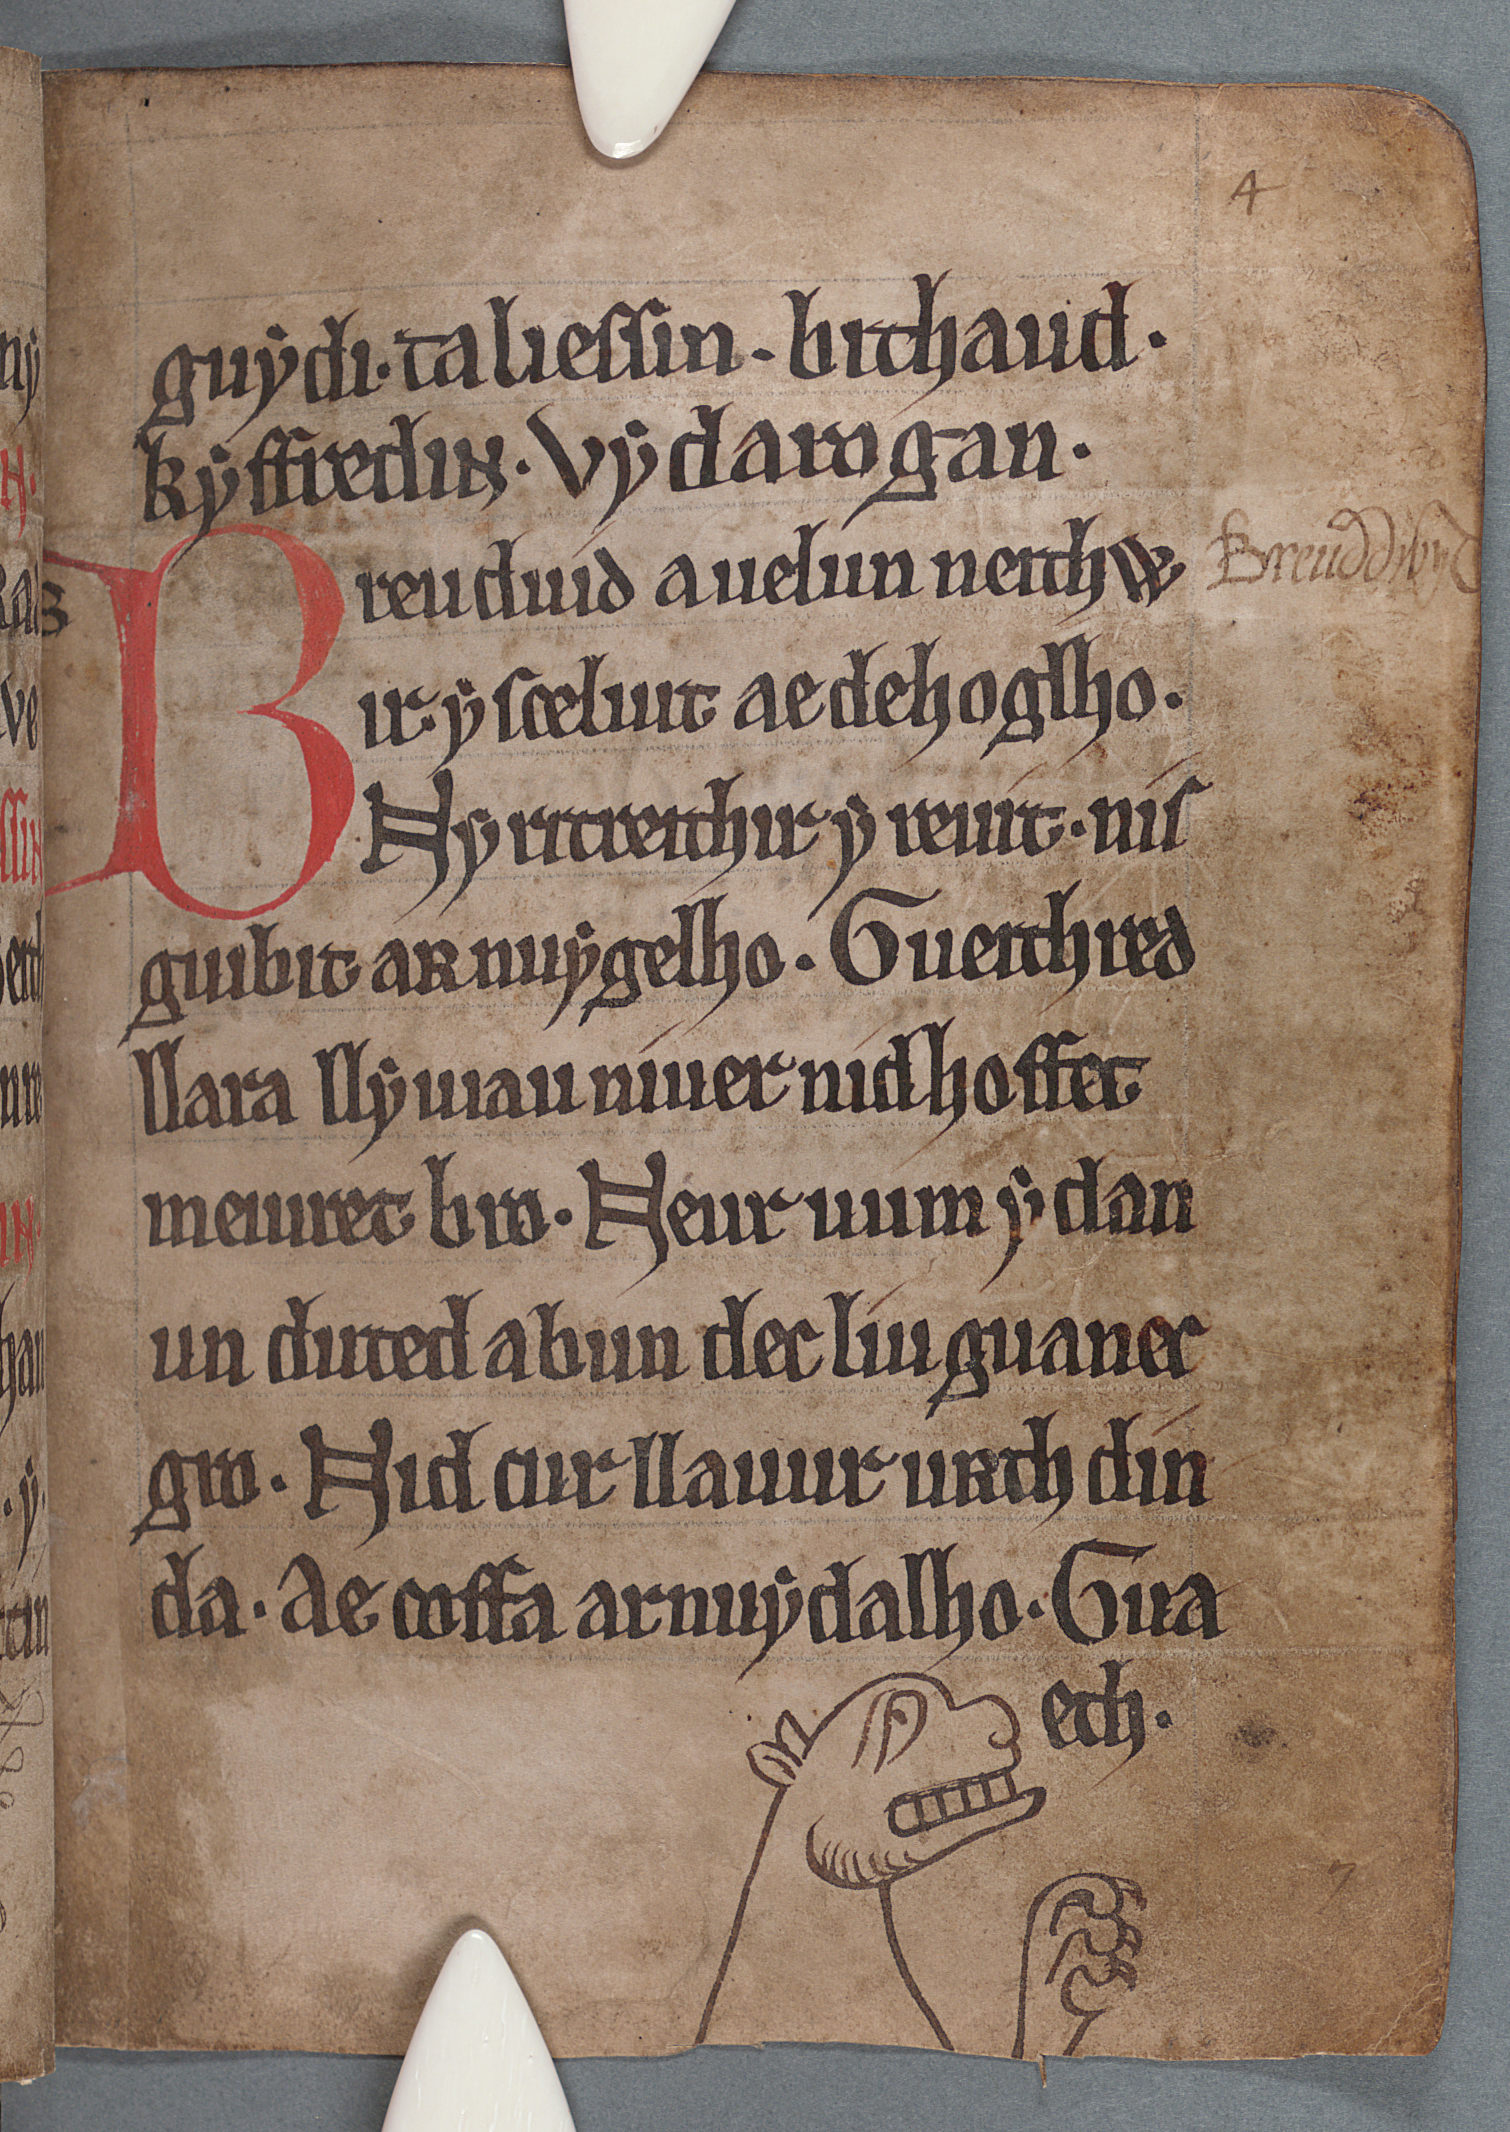 4
guẏdi. talieſſin. bithaud.
kẏffredin. vẏ darogan.
Breuduid a uelun neithw Breuddwyd
ir. ẏ sceluit ae dehoglho.
Nẏ ritreithir ẏ reuit. nis
guibit ar nuẏ gelho. Gueithred
llara llẏuiau niuer nid hoffet
meiuret bro. Neur uum ẏ dan
un duted a bun dec liu guanec
gro. Nid cur llauur urth din
da. Ae coffa ar nuẏ dalho. Gua
eth.